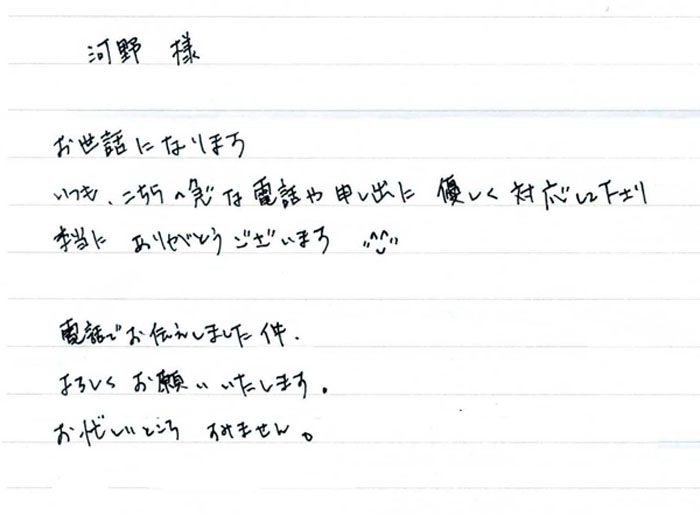 河野 様
お世話になります
いつも、こちらの急な電話や申し出に 優しく対応して下さり
本当に ありがとうございます ^^
電話でお伝えしました件、
よろしくお願いいたします。
お忙しいところ すみません。